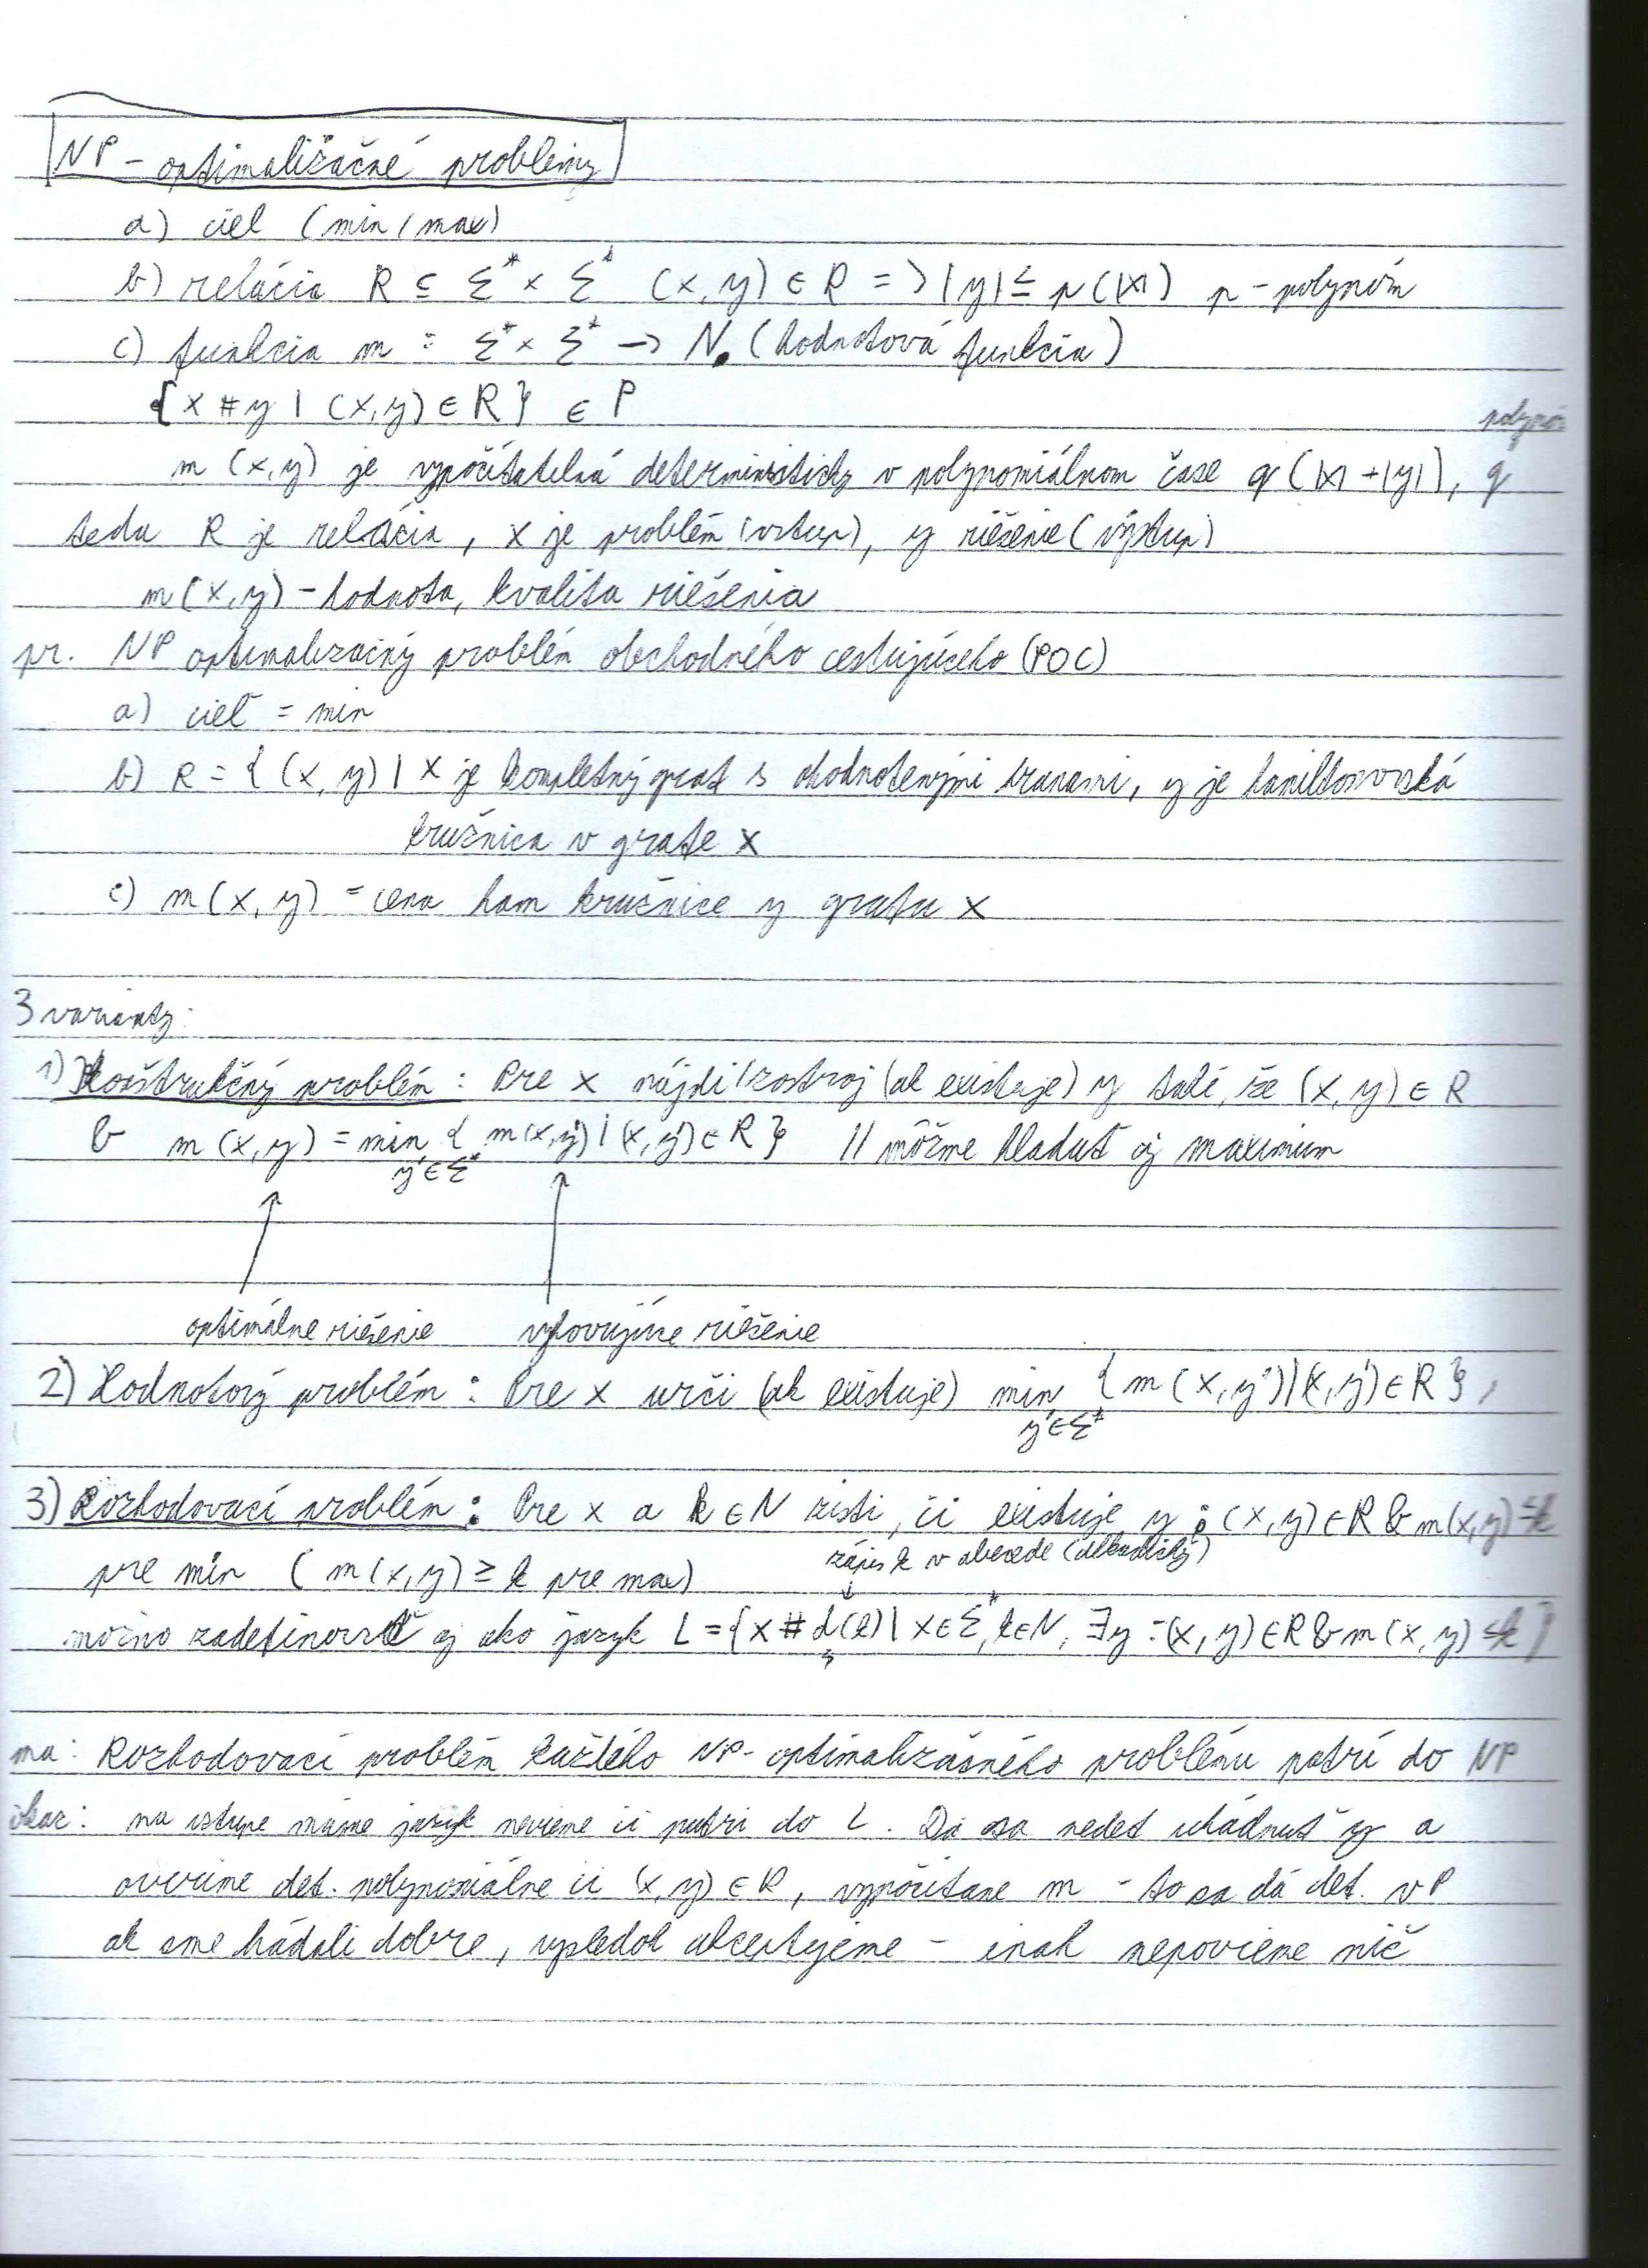 NP - optimalizačné problémy
a) cieľ (min / max)
b) relácia R ⊆ Σ* × Σ* (x, y) ∈ R => |y| ≤ p(|x|) p - polynóm
c) funkcia m : Σ* × Σ* -> N (hodnotová funkcia)
{x # y | (x, y) ∈ R} ∈ P
m (x, y) je vypočítateľná deterministicky v polynomiálnom čase q (|x| + |y|), q
teda R je relácia, x je problém (vstup), y riešenie (výstup)
m (x, y) - hodnota, kvalita riešenia
pr. NP optimalizačný problém obchodného cestujúceho (POC)
a) cieľ = min
b) R = { (x, y) | x je kompletný graf s ohodnotenými hranami, y je hamiltonovská
kružnica v grafe x
c) m (x, y) = cena ham kružnice y grafu x
3 varianty:
1) Konštrukčný problém : Pre x nájdi / zostroj (ak existuje) y také, že (x, y) ∈ R
& m (x, y) = min { m(x, y') | (x, y') ∈ R } // môžme hladať aj maximum
y' ∈ Σ*
optimálne riešenie vyhovujúce riešenie
2) Hodnotový problém : Pre x urči (ak existuje) min { m (x, y') | (x, y') ∈ R },
y' ∈ Σ*
3) Rozhodovací problém : Pre x a k ∈ N zisti, či existuje y : (x, y) ∈ R & m(x, y) ≤ k
zápis k v abecede
pre min ( m(x, y) ≥ k pre max)
možno zadefinovať aj ako jazyk L = {x # d(k) | x ∈ Σ*, k ∈ N, ∃y : (x, y) ∈ R & m (x, y) ≤ k }
ma: Rozhodovací problém každého NP - optimalizačného problému patrí do NP
na vstupe máme jazyk nevieme či patri do L. Dá sa nedet uhádnuť y a
overíme det. polynomiálne či (x, y) ∈ R, vypočítame m - to sa dá det. v P
ak sme hádali dobre, výsledok akceptujeme - inak nepovieme nič